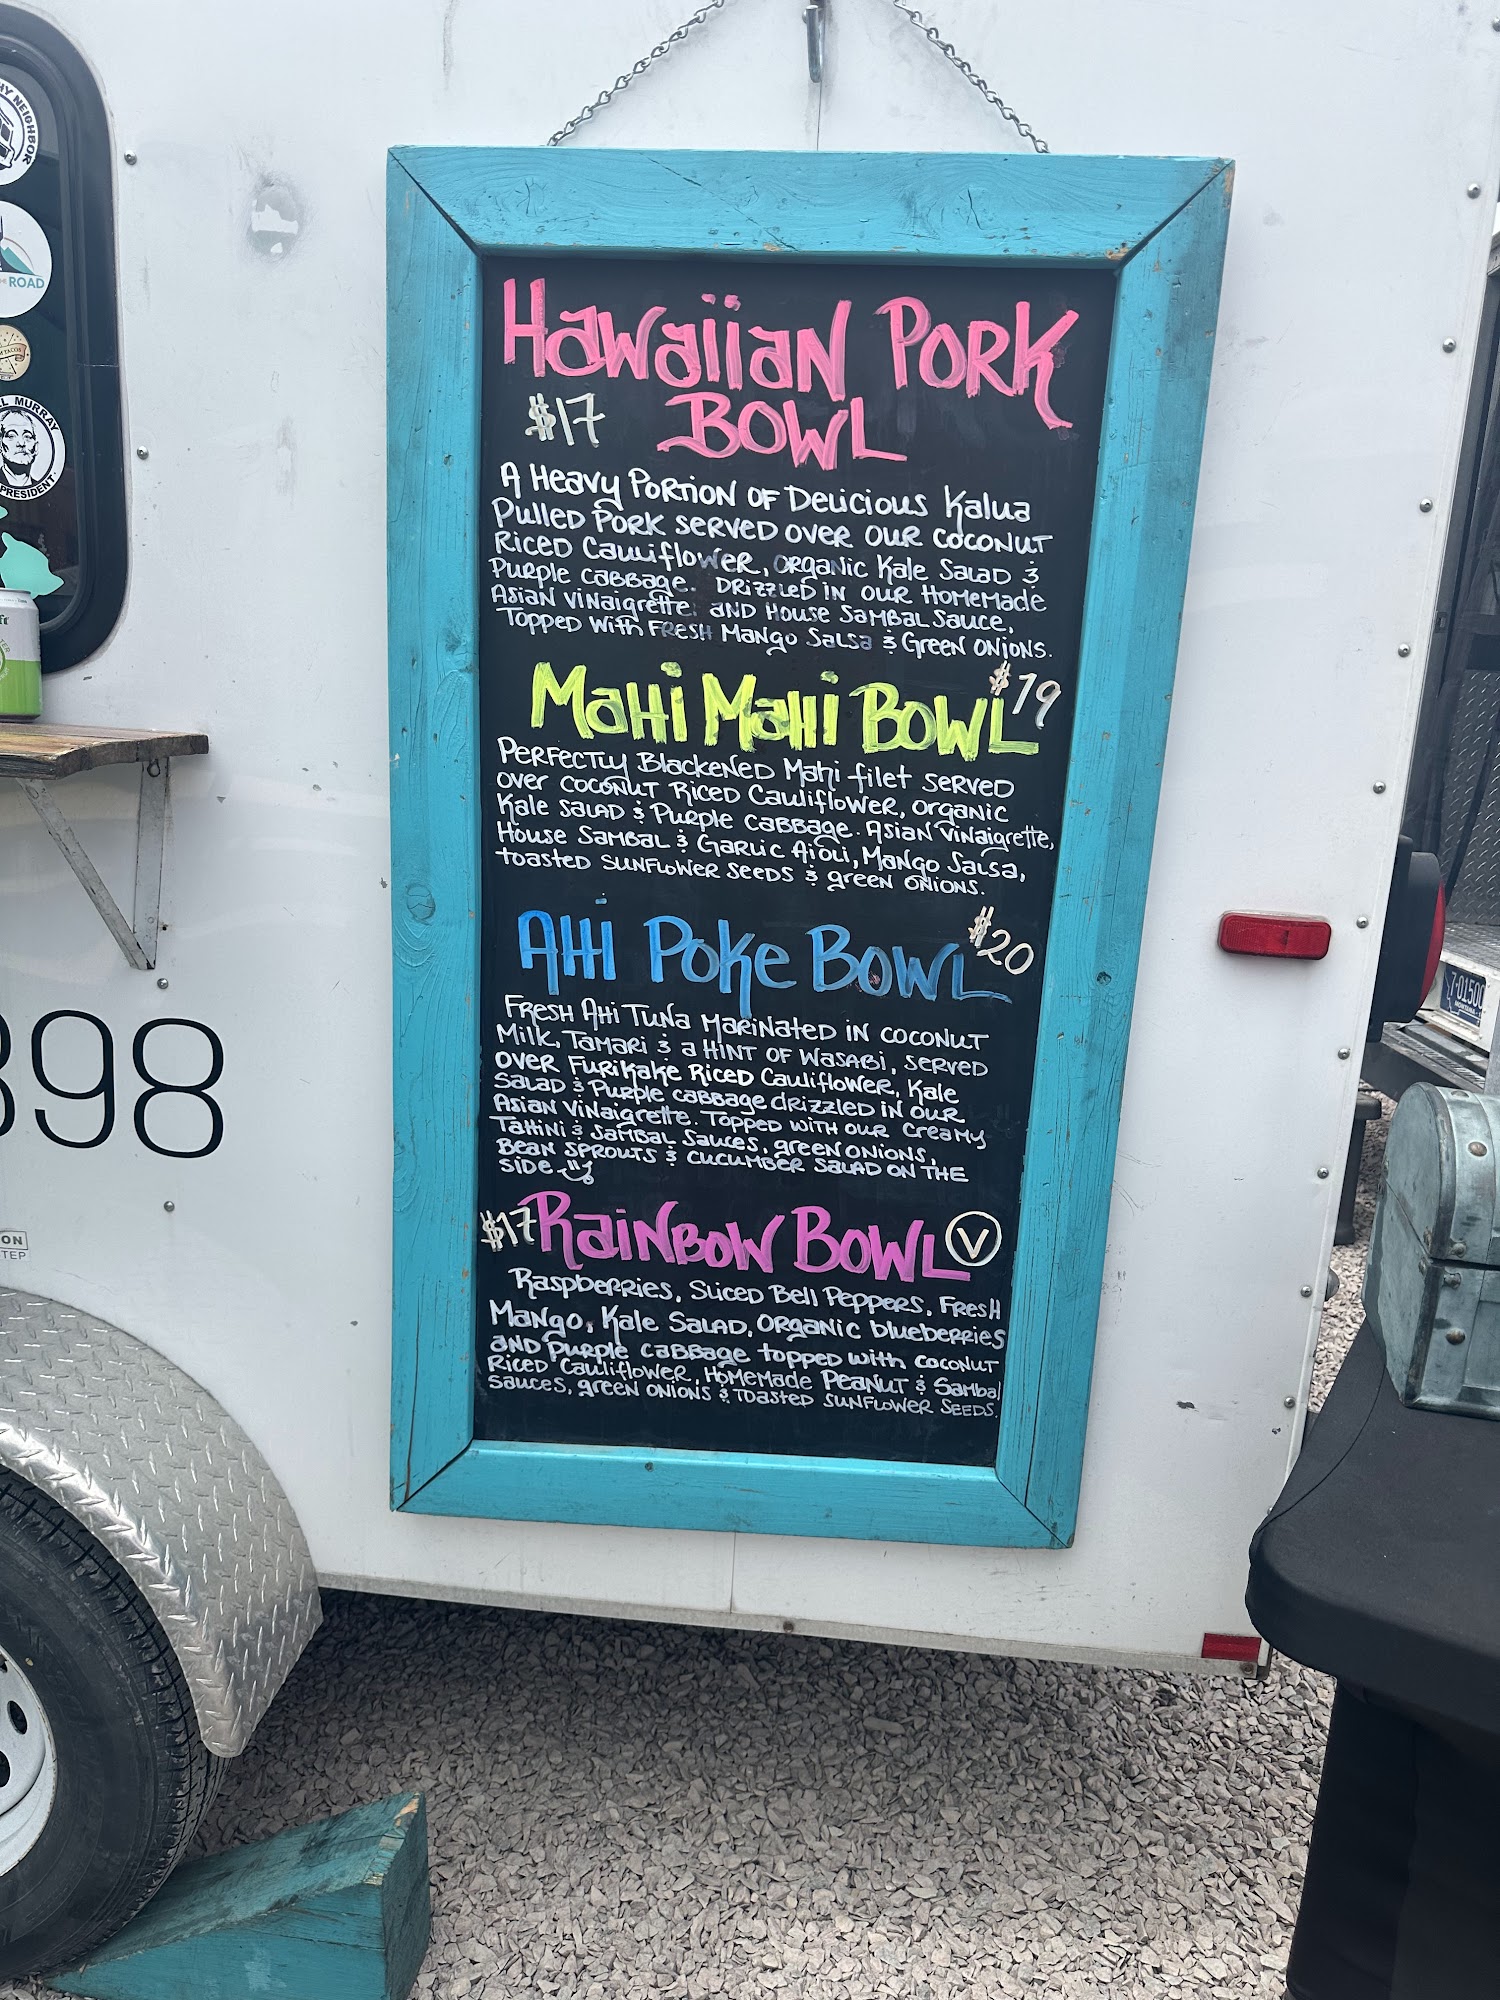 HY NEIGHBOR
ROAD
TACOS
LL MURRAY
PRESIDENT
Hawaiian Pork
$17 Bowl
A Heavy Portion of Delicious Kalua
Pulled Pork served over our coconut
Riced Cauliflower, organic Kale Salad &
Purple Cabbage. Drizzled in our Homemade
Asian Vinaigrette and House Sambal Sauce,
Topped with Fresh Mango Salsa & Green Onions.
Mahi Mahi Bowl $19
Perfectly Blackened Mahi filet served
over coconut Riced Cauliflower, organic
Kale Salad & Purple Cabbage. Asian Vinaigrette,
House Sambal & Garlic Aioli, Mango Salsa,
toasted sunflower seeds & green onions.
Ahi Poke Bowl $20
Fresh Ahi Tuna Marinated in coconut
Milk, Tamari & a hint of Wasabi, served
over Furikake Riced Cauliflower, Kale
Salad & Purple cabbage drizzled in our
Asian Vinaigrette. Topped with our creamy
Tahini & Sambal sauces, green onions,
Bean sprouts & cucumber salad on the
side
$17 Rainbow Bowl V
Raspberries, Sliced Bell Peppers, Fresh
Mango, Kale Salad, Organic blueberries
and purple cabbage topped with coconut
Riced Cauliflower, Homemade Peanut & Sambal
sauces, green onions & toasted sunflower seeds.
898
ON
TEP
7-01500
MONTANA